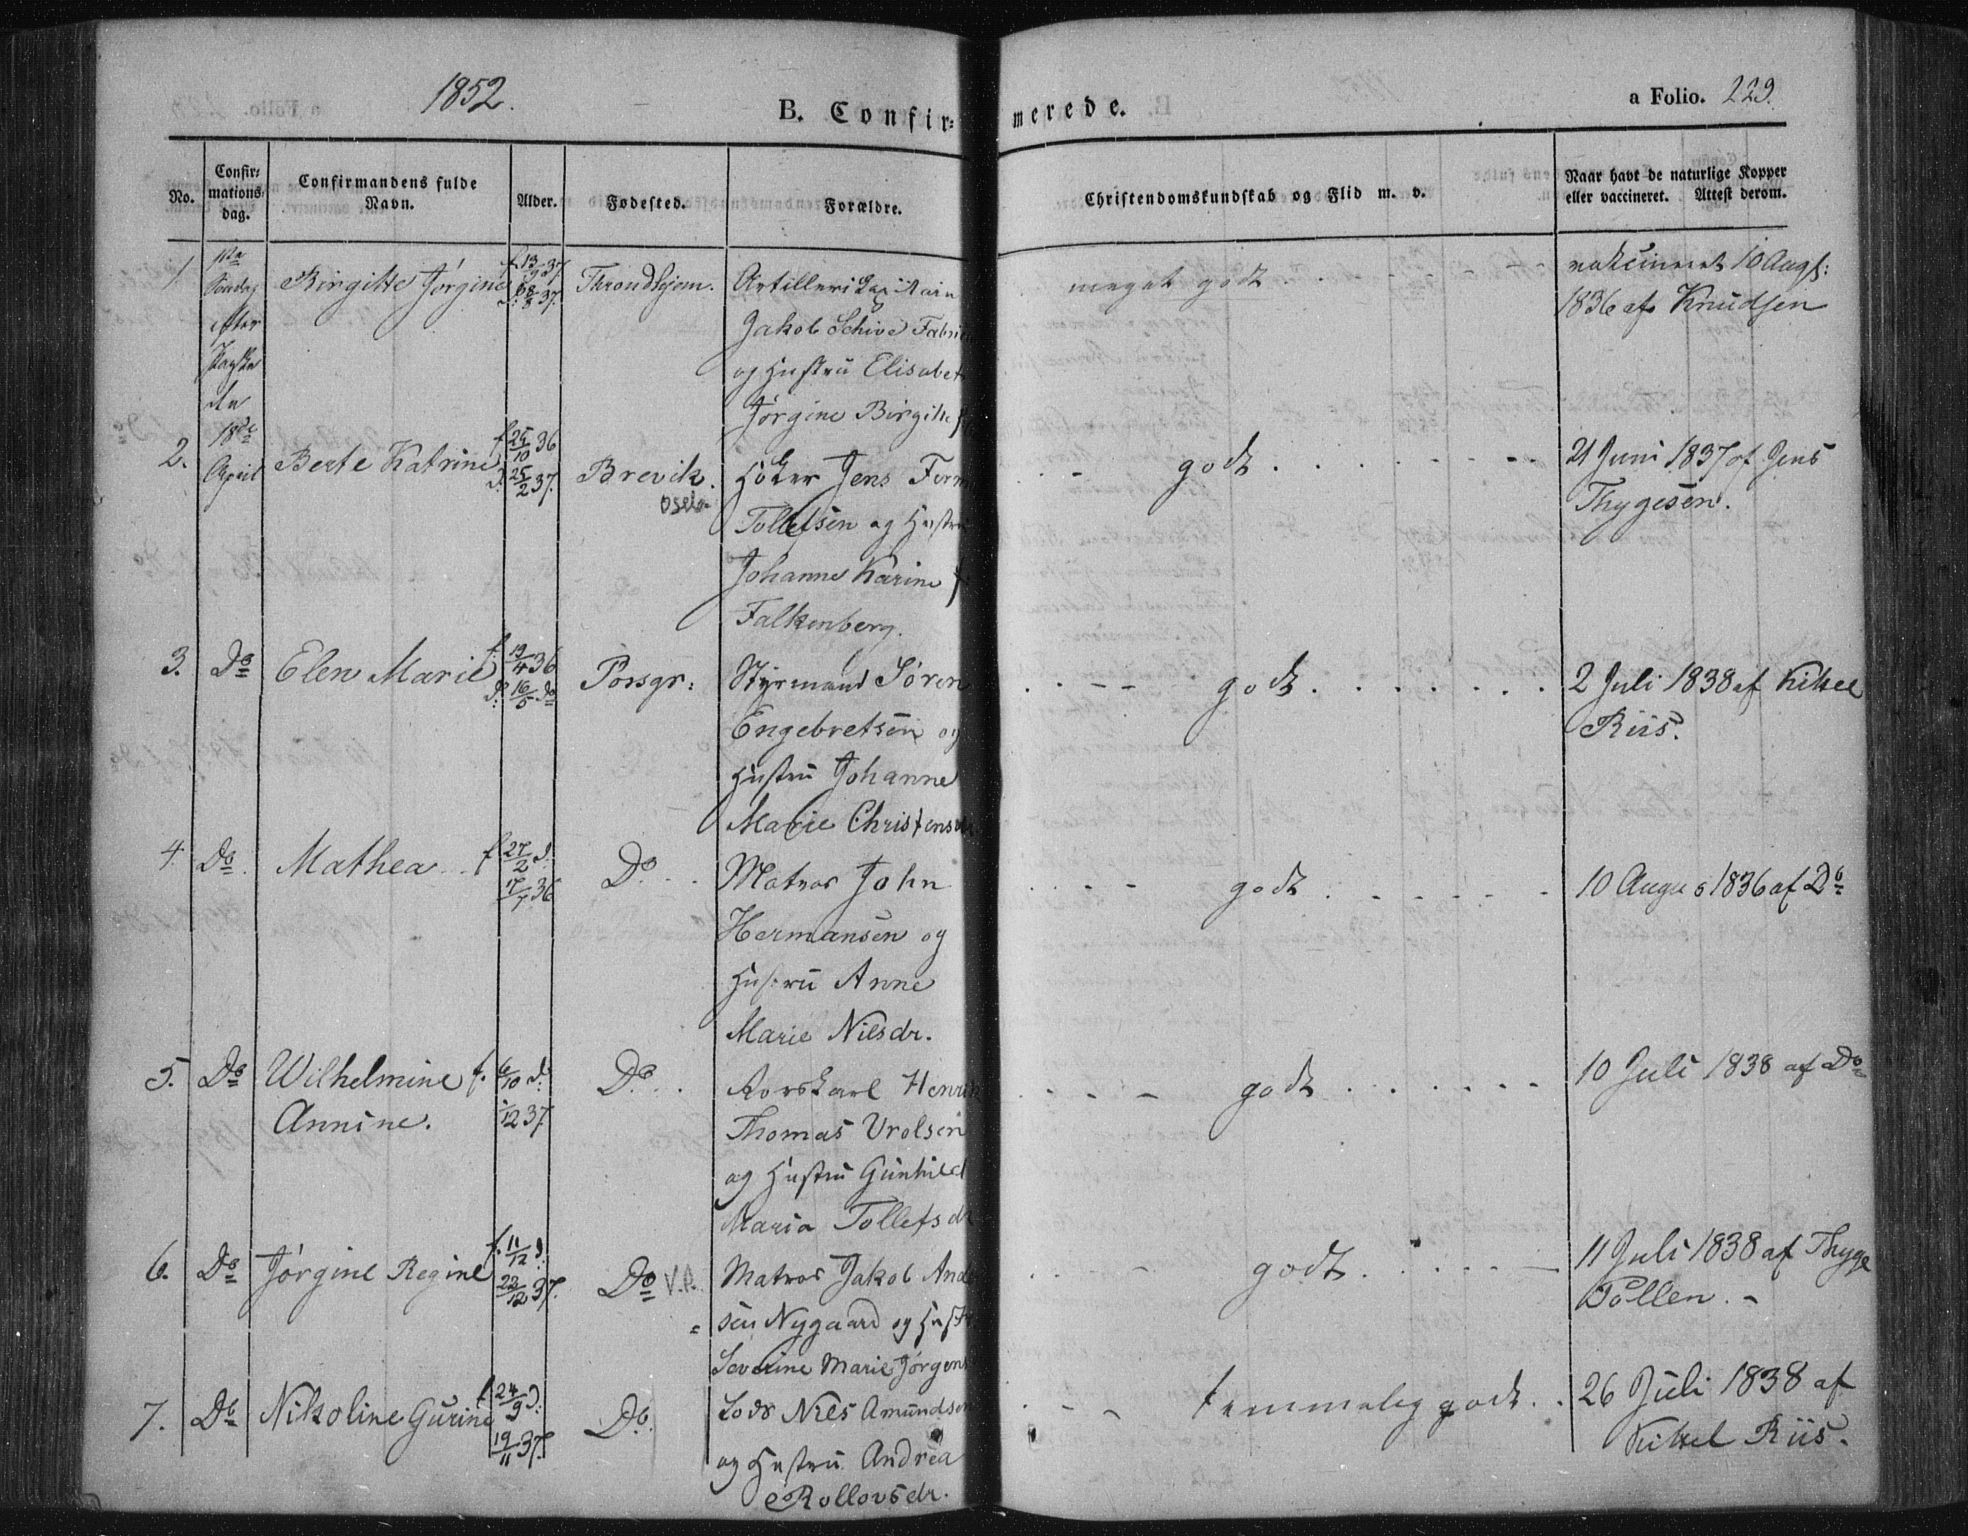 1852.
B. Confirmerede.
a Folio. 229.
No.
Confir-
mations-
dag.
Confirmandens fulde
Navn.
Alder.
Fødested.
Forældre.
Christendomskundskab og Flid m. v.
Naar havt de naturlige Kopper
eller vaccineret. Attest derom.
1
1ste
Søndag
efter
Paaske
den
18de
April
Birgitte Jørgine
f 13/9 37.
d. 8/3 37.
Throndhjem.
Artilleri Capitain
Jakob Schive
og Hustru Elisabet
Jørgine Birgitte
meget godt
vakcineret 10 Augs:
1836 af Knudsen
2.
Berte Katrine
f 25/10 36
d. 25/2 37.
Brevik.
Høker Jens
Tollefsen og Hustru
Johanne Karine f.
Falkenberg.
godt
21 Juni 1837 af Jens
Thygesen.
3.
Do
Elen Marie
f. 19/4 36
d. 16/5 do
Porsgr:
Styrmand Søren
Engebretsen og
Hustru Johanne
Marie Christensdr
godt
2 Juli 1838 af Kittel
Riis.
4.
Do.
Mathea
f 27/2 d.
17/7 36
Do
Matros John
Hermansen og
Hustru Anne
Marie Nilsdr.
godt
10 Augus 1836 af Do
5.
Do
Wilhelmine
Annine.
f. 6/10 d.
/12 37.
Do
Aorskarl Henrik
Thomas Urolsen
og Hustru Gunhild
Maria Tollefsdr
godt
10 Juli 1838 af Do
6.
Do
Jørgine Regine
f. 11/12 d.
22/12 37.
Do V.P.
Matros Jakob Ander
sen Nygaard og Hustr
Severine Marie Jørgens
godt
11 Juli 1838 af Thyge
Pollen.
7.
Do
Nikoline Gurine
f 24/9 d.
19/11 37.
Do.
Lods Nils Amundsen
og Hustru Andrea
Rollovsdr.
temmelig godt
26 Juli 1838 af
Kittel Riis.